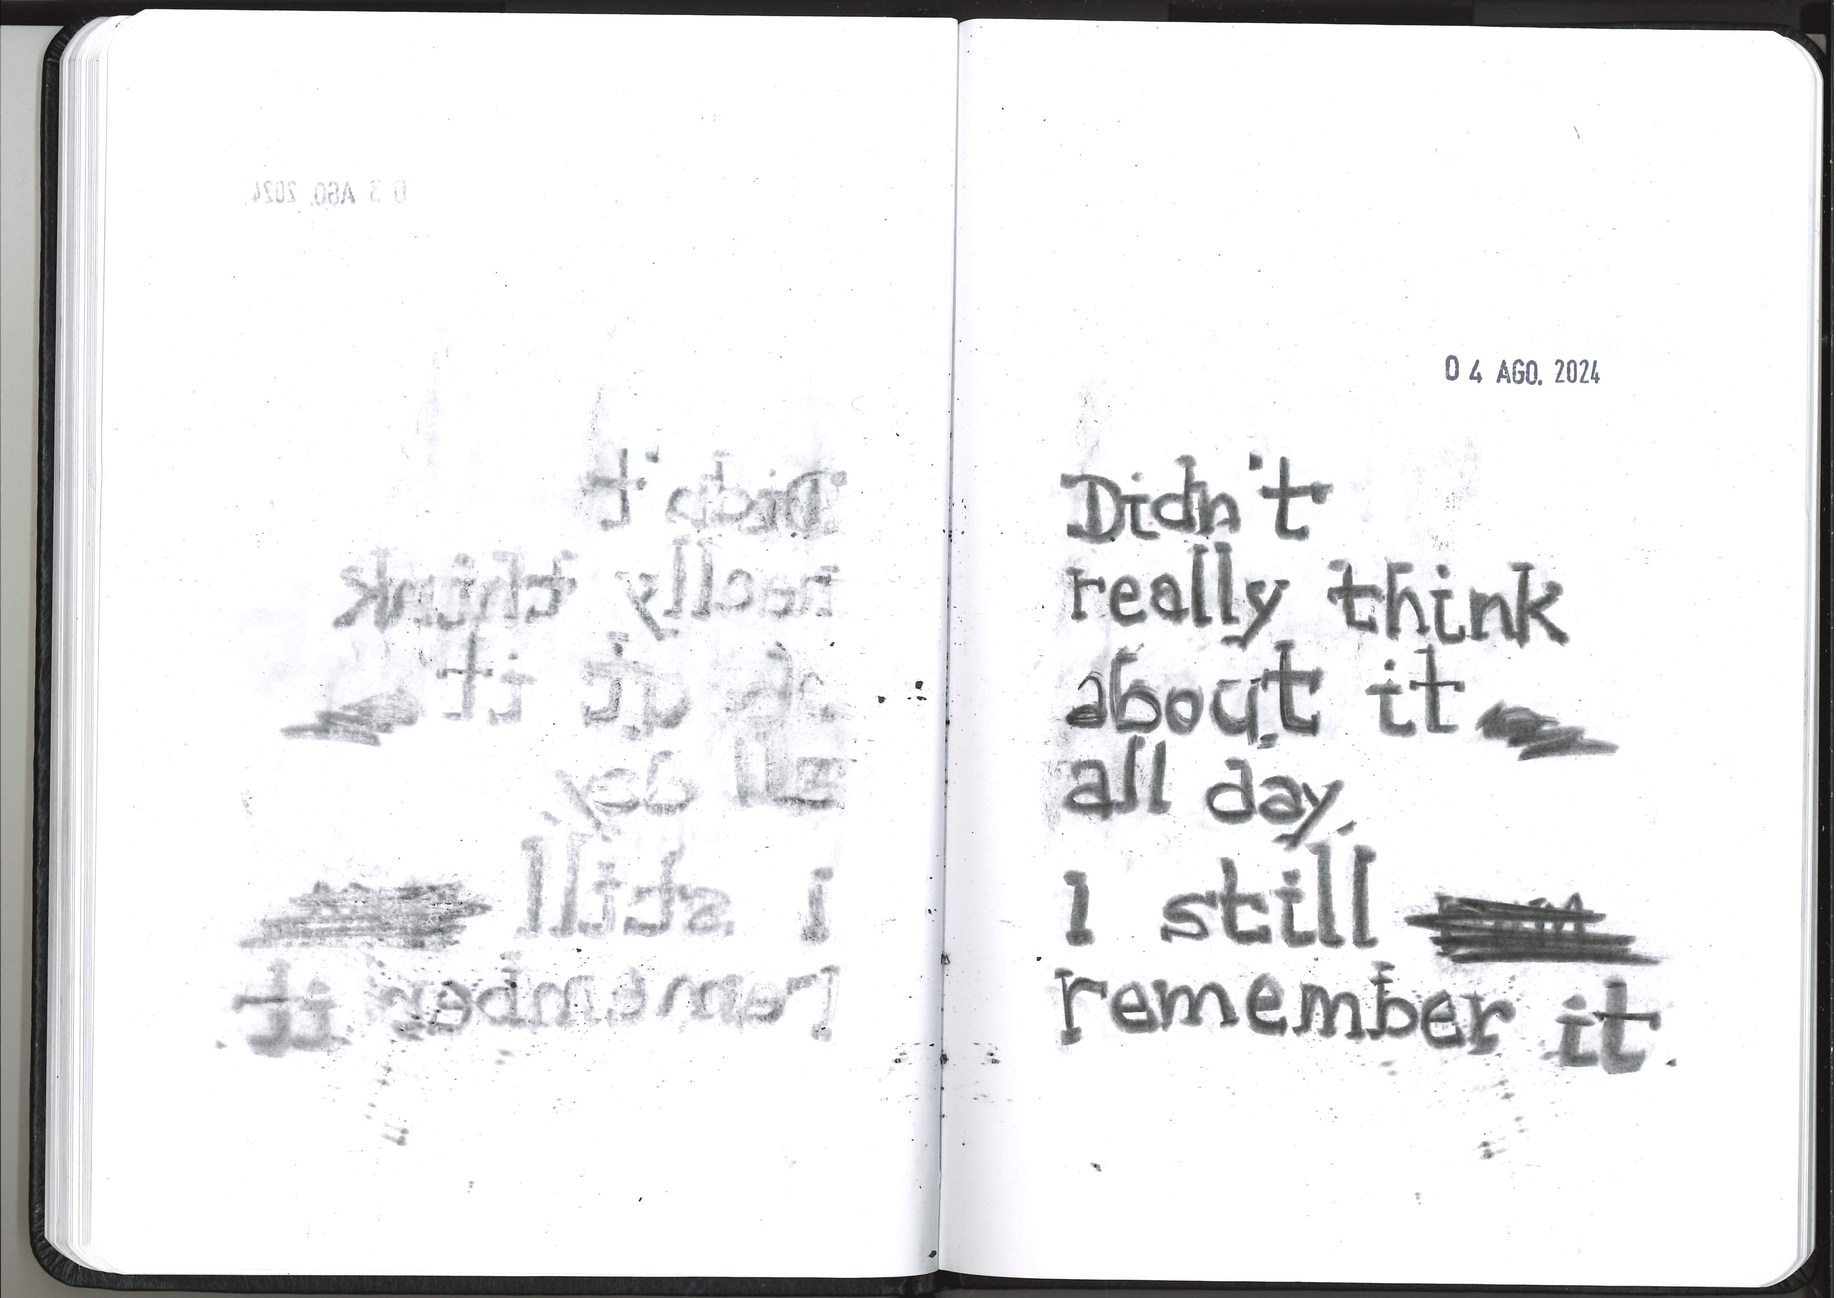 03 AGO. 2024
04 AGO. 2024
Didn't
really think
about it
all day.
I still
remember it.